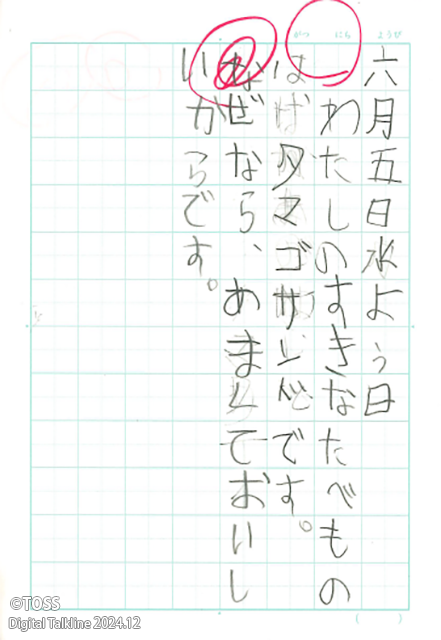 ようび
がつ
六月五日水よう日
わたしのすきなたべもの
はタマゴサンドです。
なぜなら、あまくておいし
いからです。
©TOSS
Digital Talkline 2024.12